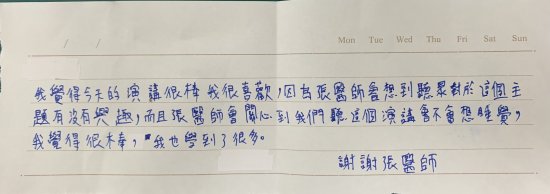 / /
Mon Tue Wed Thu Fri Sat Sun
我覺得今天的演講很棒我很喜歡,因為張醫師會想到聽眾對於這個主
題有沒有興趣,而且張醫師會關心到我們聽這個演講會不會想睡覺,
我覺得很棒,我也學到了很多。
謝謝張醫師